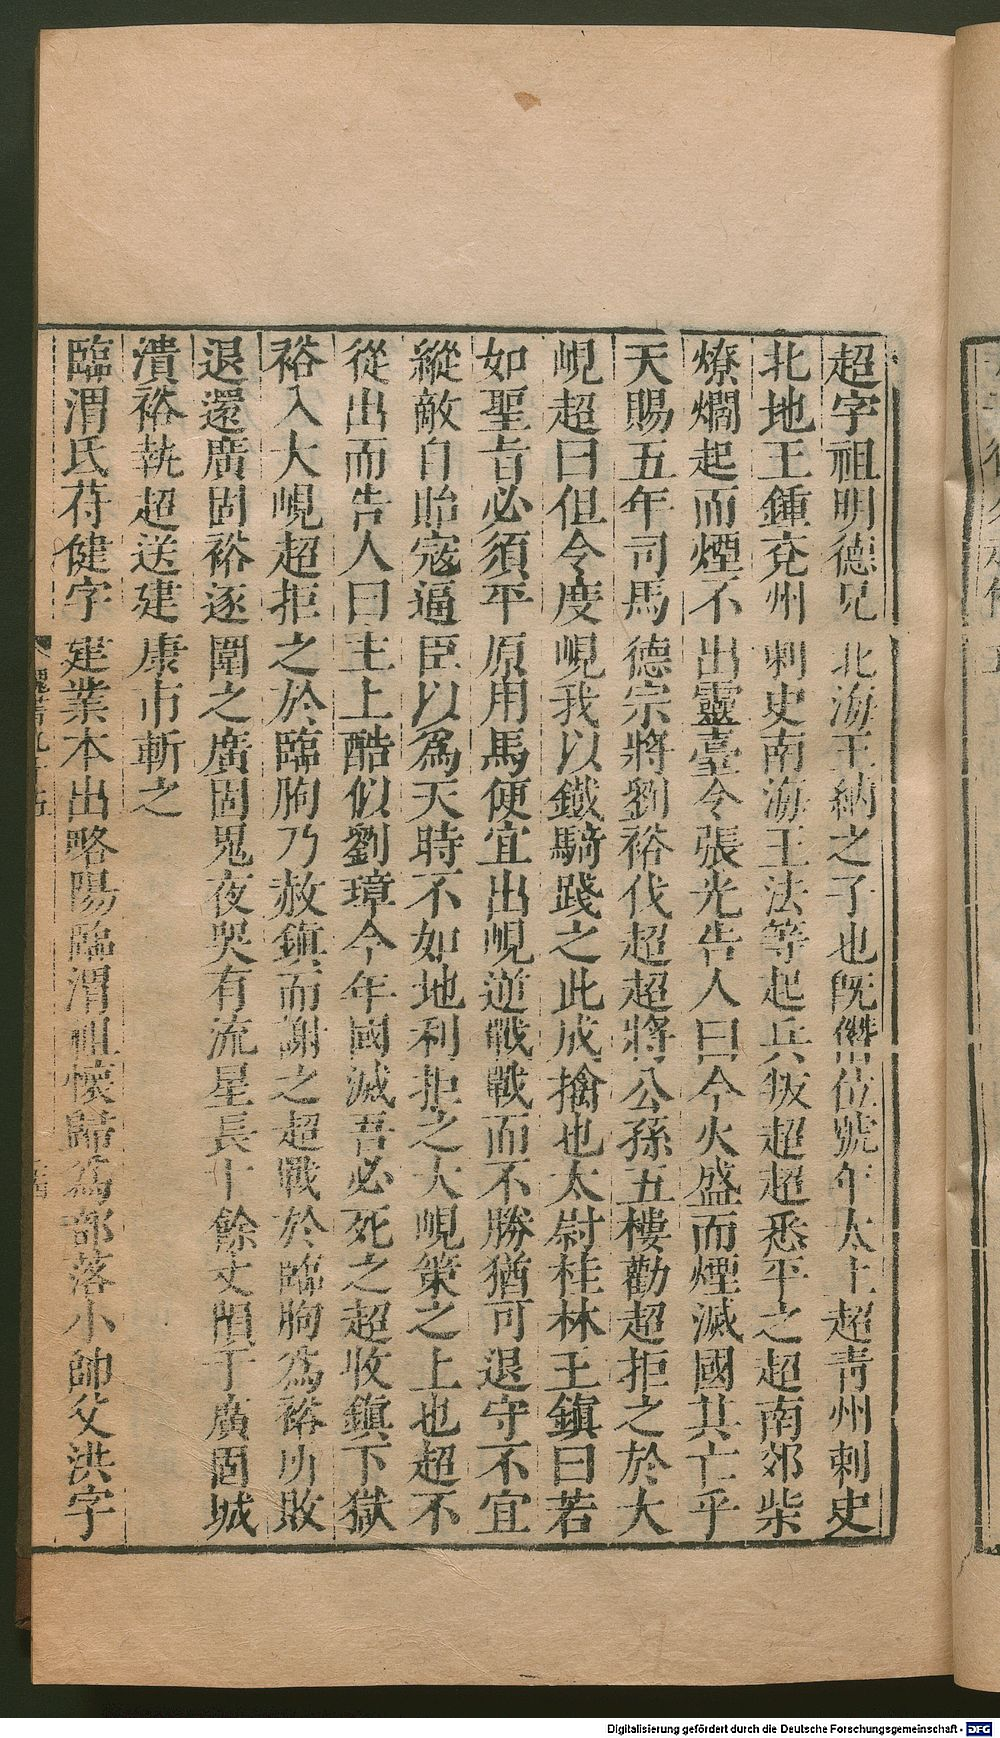 超字祖明德兄北海王納之子也旣僭位號年太上超青州刺史
北地王鍾兗州刺史南海王法等起兵叛超超悉平之超南郊柴
燎爓起而煙不出靈臺令張光告人曰今火盛而煙滅國其亡乎
天賜五年司馬德宗將劉裕伐超超將公孫五樓勸超拒之於大
峴超曰但令度峴我以鐵騎踐之此成擒也太尉桂林王鎮曰若
如聖旨必須平原用馬便宜出峴逆戰戰而不勝猶可退守不宜
縱敵自貽寇逼臣以爲天時不如地利拒之大峴策之上也超不
從出而告人曰主上酷似劉璋今年國滅吾必死之超收鎮下獄
裕入大峴超拒之於臨朐乃赦鎮而謝之超戰於臨朐爲裕所敗
退還廣固裕逐圍之廣固鬼夜哭有流星長十餘丈隕于廣固城
潰裕執超送建康市斬之
臨渭氏苻健字建業本出略陽臨渭祖懷歸爲部落小帥父洪字
魏書九十五
Digitalisierung gefördert durch die Deutsche Forschungsgemeinschaft - DFG